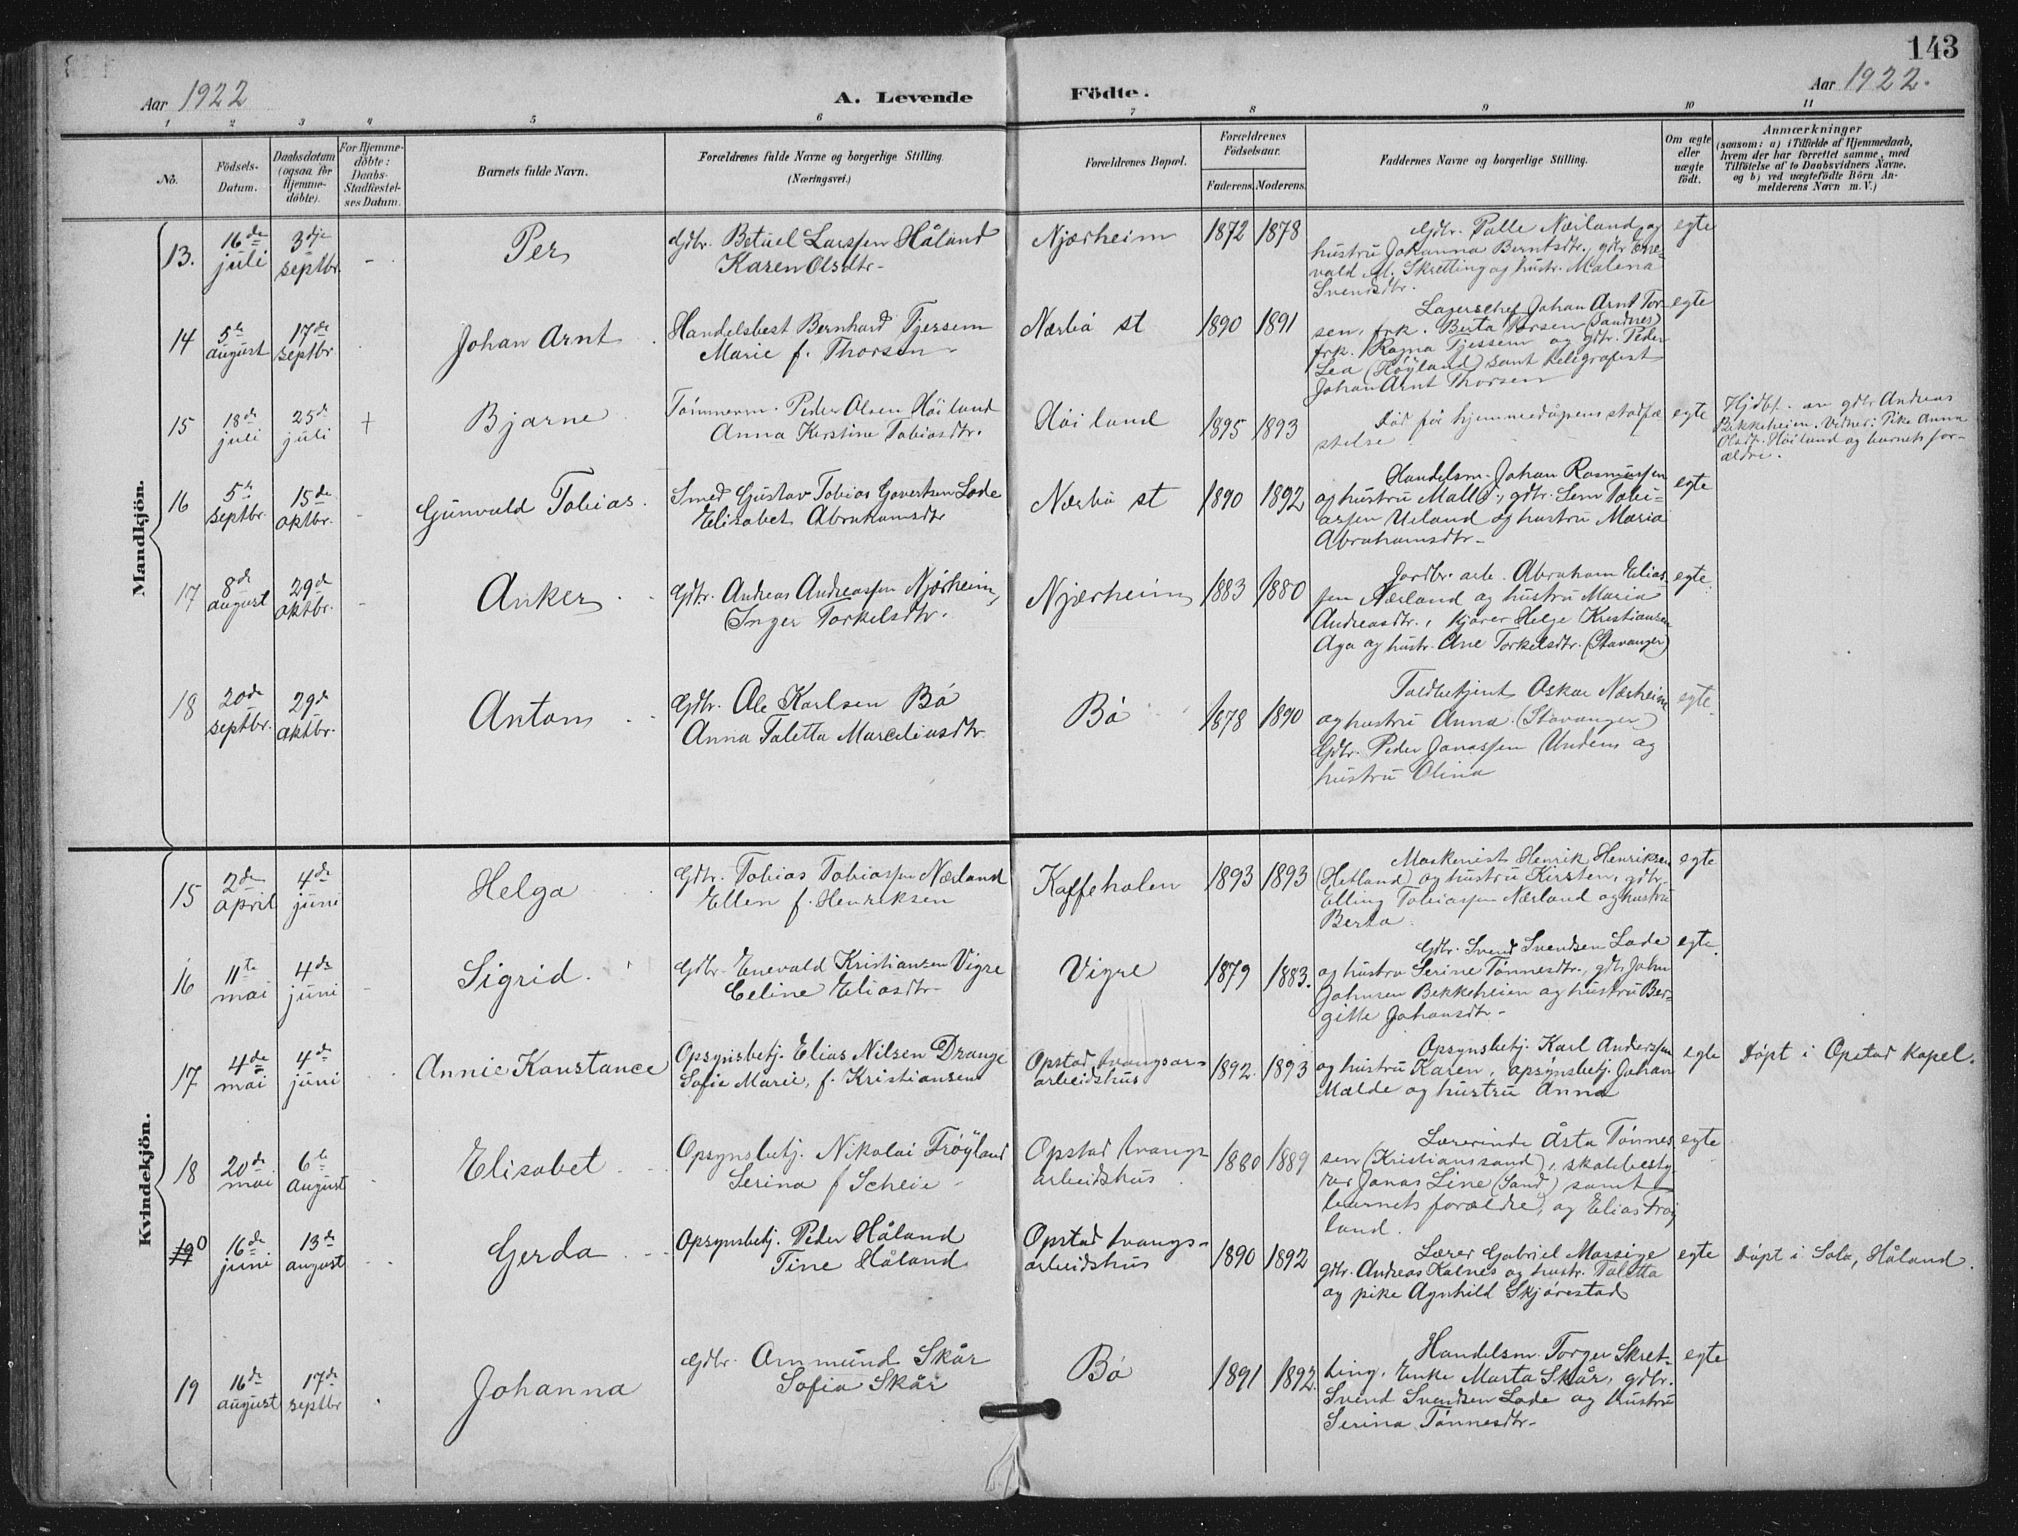 143
Aar 1922
A. Levende
Födte.
Aar 1922.
1 2 3 4 5 6 7 8 9 10 11
No.
Födsels-
Datum.
Daabsdatum
(ogsaa for
Hjemme-
döbte).
For Hjemme-
döbte:
Daabs-
Stadfæstel-
ses Datum.
Barnets fulde Navn.
Forældrenes fulde Navne og borgerlige Stilling.
(Næringsvei.)
Forældrenes Bopæl.
Forældrenes
Födselsaar.
Faderens. Moderens.
Faddernes Navne og borgerlige Stilling.
Om ægte
eller
uægte
født.
Anmærkninger
(saasom: a) i Tilfælde af Hjemmedaab,
hvem der har forrettet samme, med
Tilföielse af to Daabsvidners Navne,
og b) ved uægtefödte Börn An-
melderens Navn m. V.)
Mandkjön.
13.
16de
juli
3dje
septbr.
-
Per
Gdbr. Betuel Larssen Håland
Karen Olsdtr.
Njærheim
1872 1878
Gdbr. Palle Nærland og
hustru Johanna Berntsdtr., gdbr. Ene-
vald M. Skretting og hustr. Malena
Svendsdtr.
egte
14
5te
august
17de
septbr.
Johan Arnt
Handelsbest Bernhard Tjessem
Marie f. Thorsen
Nærbö st
1890 1891
Lagerschef Johan Arnt Tor-
sen, frk. Berta Torsen (Sandnes)
frk. Ragna Tjessem og gdbr. Peder
Lea (Høyland) samt telegrafist
Johan Arnt Thorsen
egte
15
18de
juli
25de
juli
+
Bjarne
Tömmerm. Peder Olsen Höiland
Anna Kirstine Tobiasdtr.
Höiland
1895 1893
Död för hjemmedåpens stadfæ
stelse
egte
Hjdbt. av gdbr Andreas
Bekkeheien. Vidner: Pike Anna
Olsdtr. Höiland og barnets for-
ældre.
16
5te
septbr.
15de
oktbr.
Gunvald Tobias.
Smed Gustav Tobias Govertsen Lode
Elisabet Abrahamsdtr
Nærbö st
1890 1892
Handelsm. Johan Rasmussen
og hustru Malli, gdbr. Sem Tobi-
assen Ueland og hustru Maria
Abrahamsdtr.
egte
17
8de
august
29de
oktbr.
-
Anker
Gdbr. Andreas Andreassen Njærheim,
Inger Torkelsdtr.
Njærheim
1883 1880
Jordbr. arb. Abraham Elias-
sen Nærland og hustru Maria
Andreasdtr., kjörer Helge Kristiansen
Aga og hustr. Ane Torkelsdtr. (Stavanger)
egte.
18
20de
septbr.
29de
oktbr.
Anton
Gdbr. Ole Karlsen Bö
Anna Taletta Marceliusdtr
Bö
1878 1890
Toldbetjent Oskar Nærheim
og hustru Anna (Stavanger)
Gdbr. Peder Jonassen Undem og
hustru Olina
egte.
Kvindekjön.
15
2den
april
4de
juni
Helga
Gdbr. Tobias Tobiassen Nærland
Ellen f. Henriksen
Kaffeholen
1893 1893
Maskenist Henrik Henriksen
(Hetland) og hustru Kirsten, gdbr.
Elling Tobiassen Nærland og hustru
Berta.
egte
16
11te
mai
4de
juni
-
Sigrid.
Gdbr. Enevald Kristiansen Vigre
Celine Eliasdtr.
Vigre
1879 1883.
Gdbr. Svend Svendsen Lode
og hustru Serine Tönnesdtr., gdbr. John
Johnsen Bekkeheien og hustru Ber-
gitte Johansdtr.
egte.
17
4de
mai
4de
juni
Annie Konstance
Opsynsbetj. Elias Nilsen Drange
Sofie Marie, f. Kristiansen
Opstad tvangsar-
arbeidshus
1892. 1893
Opsynsbetj. Karl Anderssen
og hustru Karen, opsynsbetj. Johan
Malde og hustru Anna
egte
Döpt i Opstad kapel.
18
20de
mai
6te
august
Elisabet
Opsynsbetj. Nikolai Fröyland
Serina f Scheie
Opstad tvangs-
arbeidshus
1880 1889
Lærerinde Åsta Tönnes-
sen (Kristianssand), skolebesty
rer Jonas Line (Sand) samt
barnets forældre, og Elias Fröy
land.
egte
190
16de
juni
13de
august
Gerda
Opsynsbetj. Peder Håland
Tine Håland
Opstad tvangs-
arbeidshus
1890 1892
Lærer Gabriel Massige
gdbr. Andreas Kalnes og hustr. Taletta
og pike Agnhild Skjörestad
egte
Döpt i Sola, Håland.
19
16de
august
17de
septbr
Johanna
Gdbr. Ommund Skår
Sofia Skår
Bö
1891 1892.
Handelsm. Torger Skret-
ting. Enke Marta Skår, gdbr.
Svend Svendsen Lode og hustru
Serina Tönnesdtr.
egte